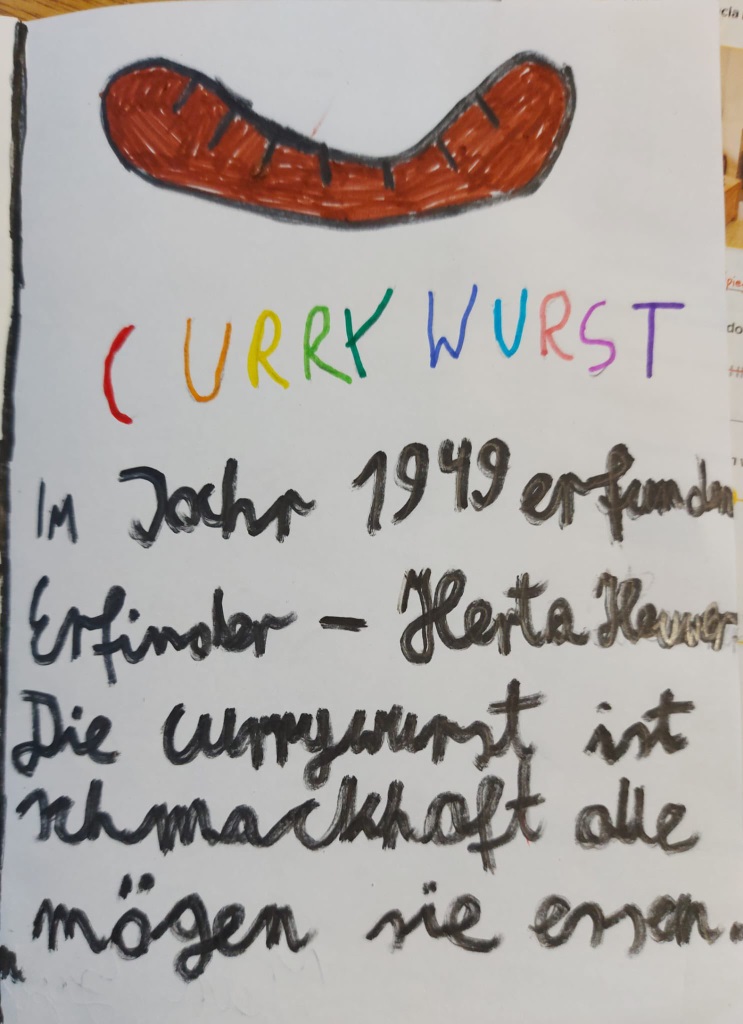 CURRY WURST
Im Jahr 1949 erfunden
Erfinder – Herta Heuwer
Die currywurst ist
schmackhaft alle
mögen sie essen.